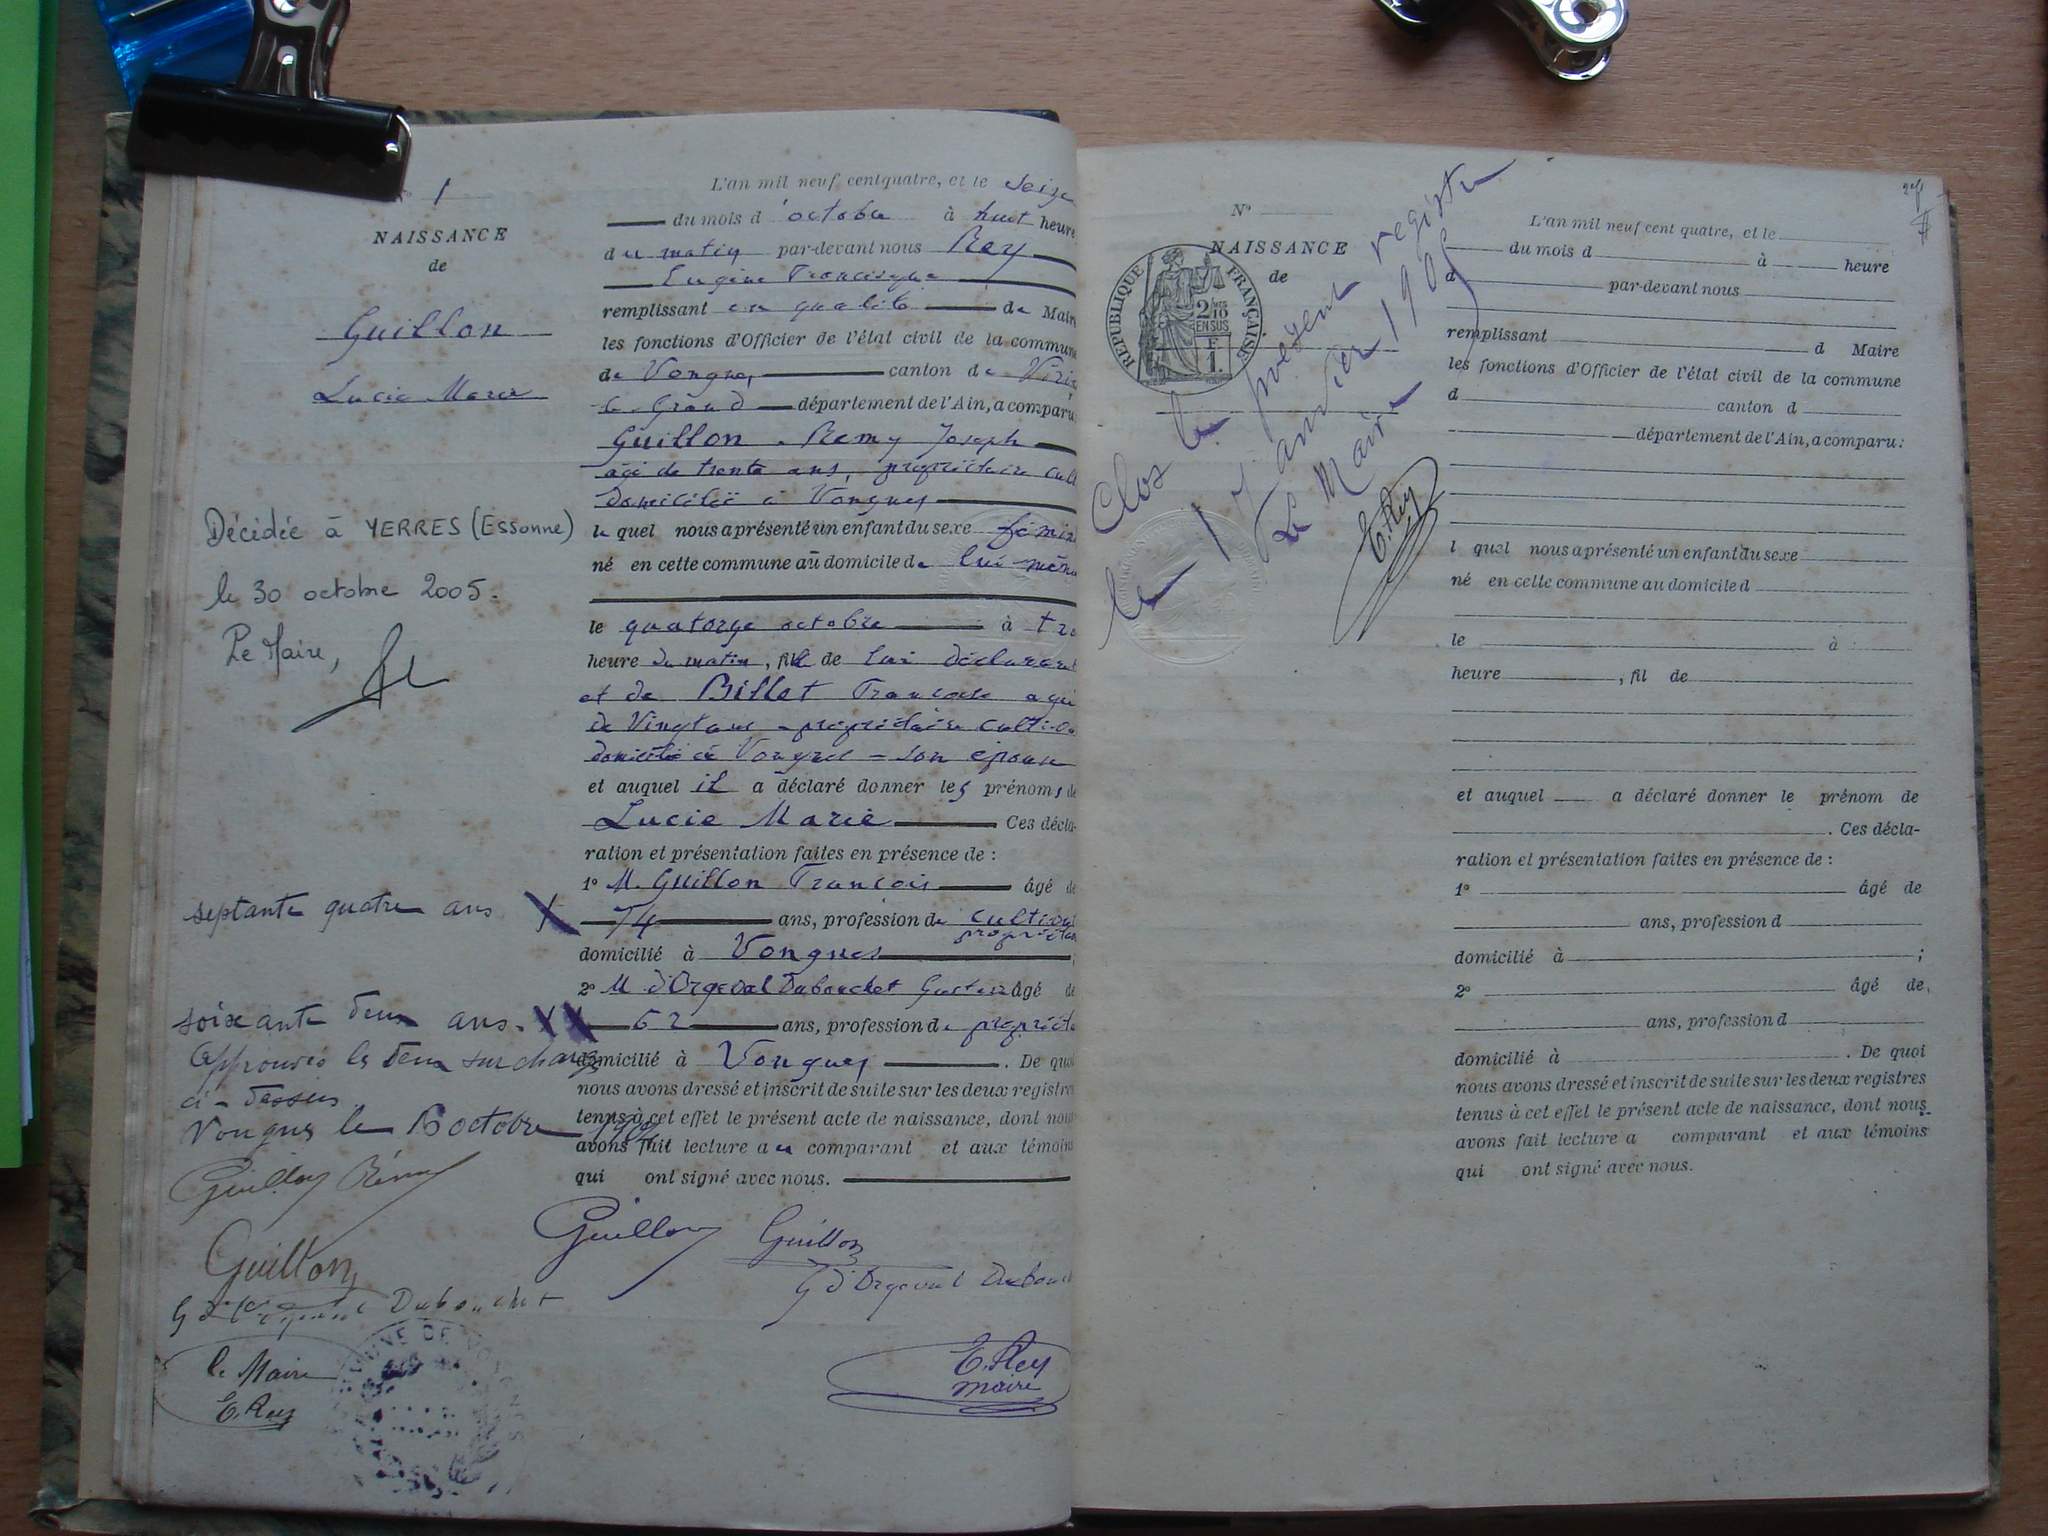 1
NAISSANCE
de
Guillon
Lucie Marie
Décédée à YERRES (Essonne)
le 30 octobre 2005.
Le Maire,
septante quatre ans X
soixante deux ans. X X
Approuvés les deux surcharges
ci-dessus
Vongnes le octobre
Guillon Rémy
Guillon
G d'Orgeval Dubouchet
le Maire
E. Rey
L'an mil neuf cent quatre, et le seize
du mois d'octobre à huit heure
du matin par-devant nous Rey
Eugène Francisque
remplissant en qualité de Maire
les fonctions d'Officier de l'état civil de la commune
de Vongnes canton de Viri
le Grand département de l'Ain, a comparu:
Guillon Remy Joseph
âgé de trente ans, propriétaire cult
domicilié à Vongnes
le quel nous a présenté un enfant du sexe fémin
né en cette commune au domicile de lui même
le quatorze octobre à tro
heure du matin, fille de lui déclarant
et de Billet Françoise agée
de Vingt ans - propriétaire cultiva
domiciliée à Vongnes - son épouse
et auquel il a déclaré donner les prénoms de
Lucie Marie Ces décla-
ration et présentation faites en présence de :
1° M. Guillon François âgé de
74 ans, profession de cultivat
propriétaire
domicilié à Vongnes ;
2° M d'Orgeval Dubouchet Gustave âgé de
62 ans, profession de propriéta
domicilié à Vongnes . De quoi
nous avons dressé et inscrit de suite sur les deux registres
tenus à cet effet le présent acte de naissance, dont nous
avons fait lecture au comparant et aux témoins
qui ont signé avec nous.
Guillon Guillon
G d'Orgeval Dubouch
E. Rey
maire
N°
NAISSANCE
de
RÉPUBLIQUE FRANÇAISE
2/10
EN SUS
1.
Clos le présent registre
le 1 janvier 1905
Le Maire
E. Rey
L'an mil neuf cent quatre, et le
du mois d à heure
d par-devant nous
remplissant d Maire
les fonctions d'Officier de l'état civil de la commune
d canton d
département de l'Ain, a comparu :
l quel nous a présenté un enfant du sexe
né en cette commune au domicile d
le à
heure , fil de
et auquel a déclaré donner le prénom de
. Ces décla-
ration et présentation faites en présence de :
1° âgé de
ans, profession d
domicilié à ;
2° âgé de
ans, profession d
domicilié à . De quoi
nous avons dressé et inscrit de suite sur les deux registres
tenus à cet effet le présent acte de naissance, dont nous
avons fait lecture a comparant et aux témoins
qui ont signé avec nous.